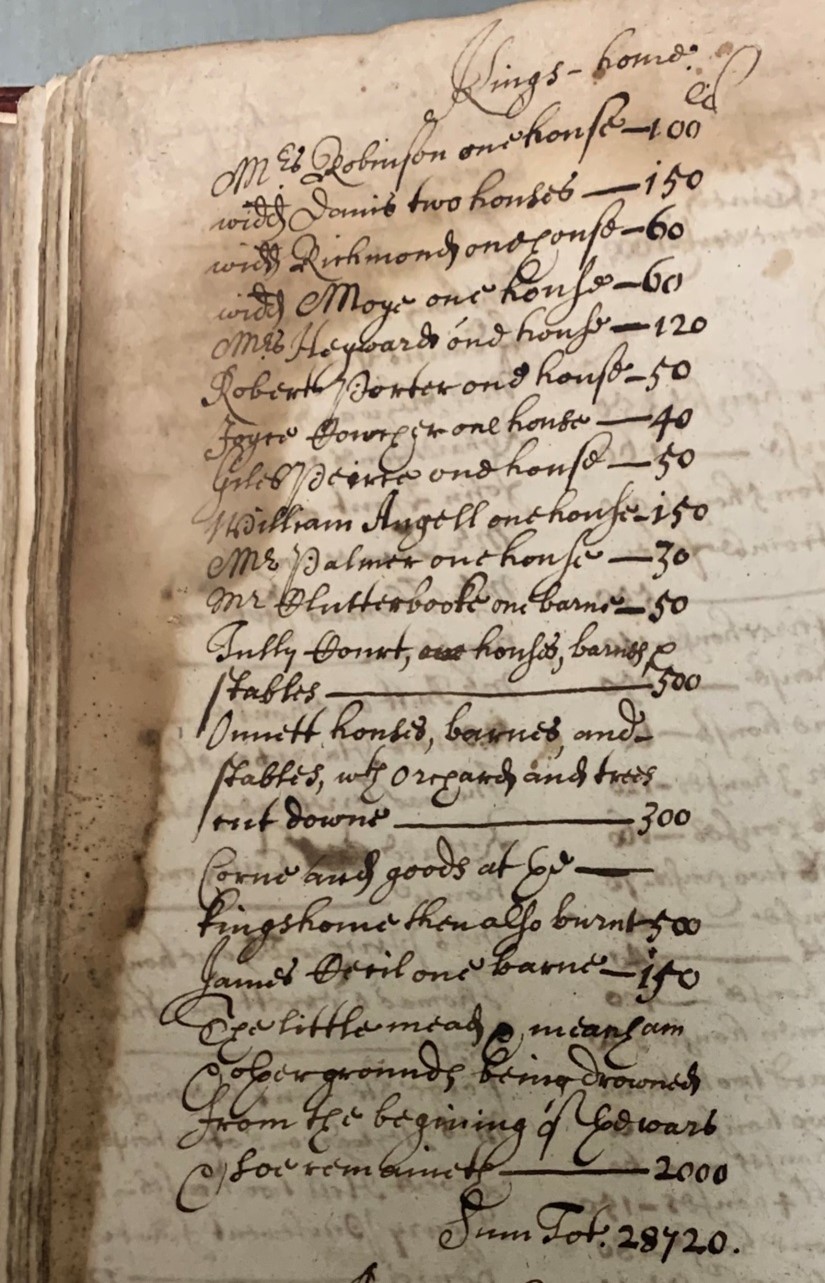 Kings-home.
li
Mrs Robinson one house — 100
widd Davis two houses — 150
widd Richmond one house — 60
widd Moye one house — 60
Mrs Heyward one house — 120
Robert Porter one house — 50
Joyce Cowper one house — 40
Giles Peirce one house — 50
William Angell one house — 150
Mr Palmer one house — 30
Mr Clutterbooke one barne — 50
Tully Court, houses, barnes, &
stables — 500
Onnett houses, barnes, and
stables, wth Orchard and trees
cut downe — 300
Corne and goods at the —
kingshome then also burnt 500
James Cecil one barne — 150
The little mead & meanham
& other grounds being drowned
from the begining of the wars
& soe remaineth — 2000
Sum Tot. 28720.